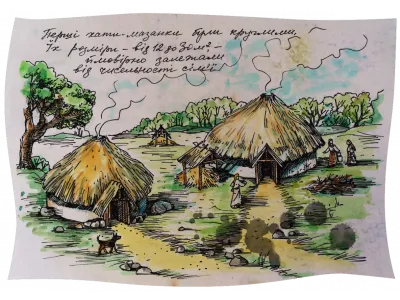 Перші хати-мазанки були круглими.
Їх розміри – від 12 до 30м² –
ймовірно залежали
від чисельності сім'ї!